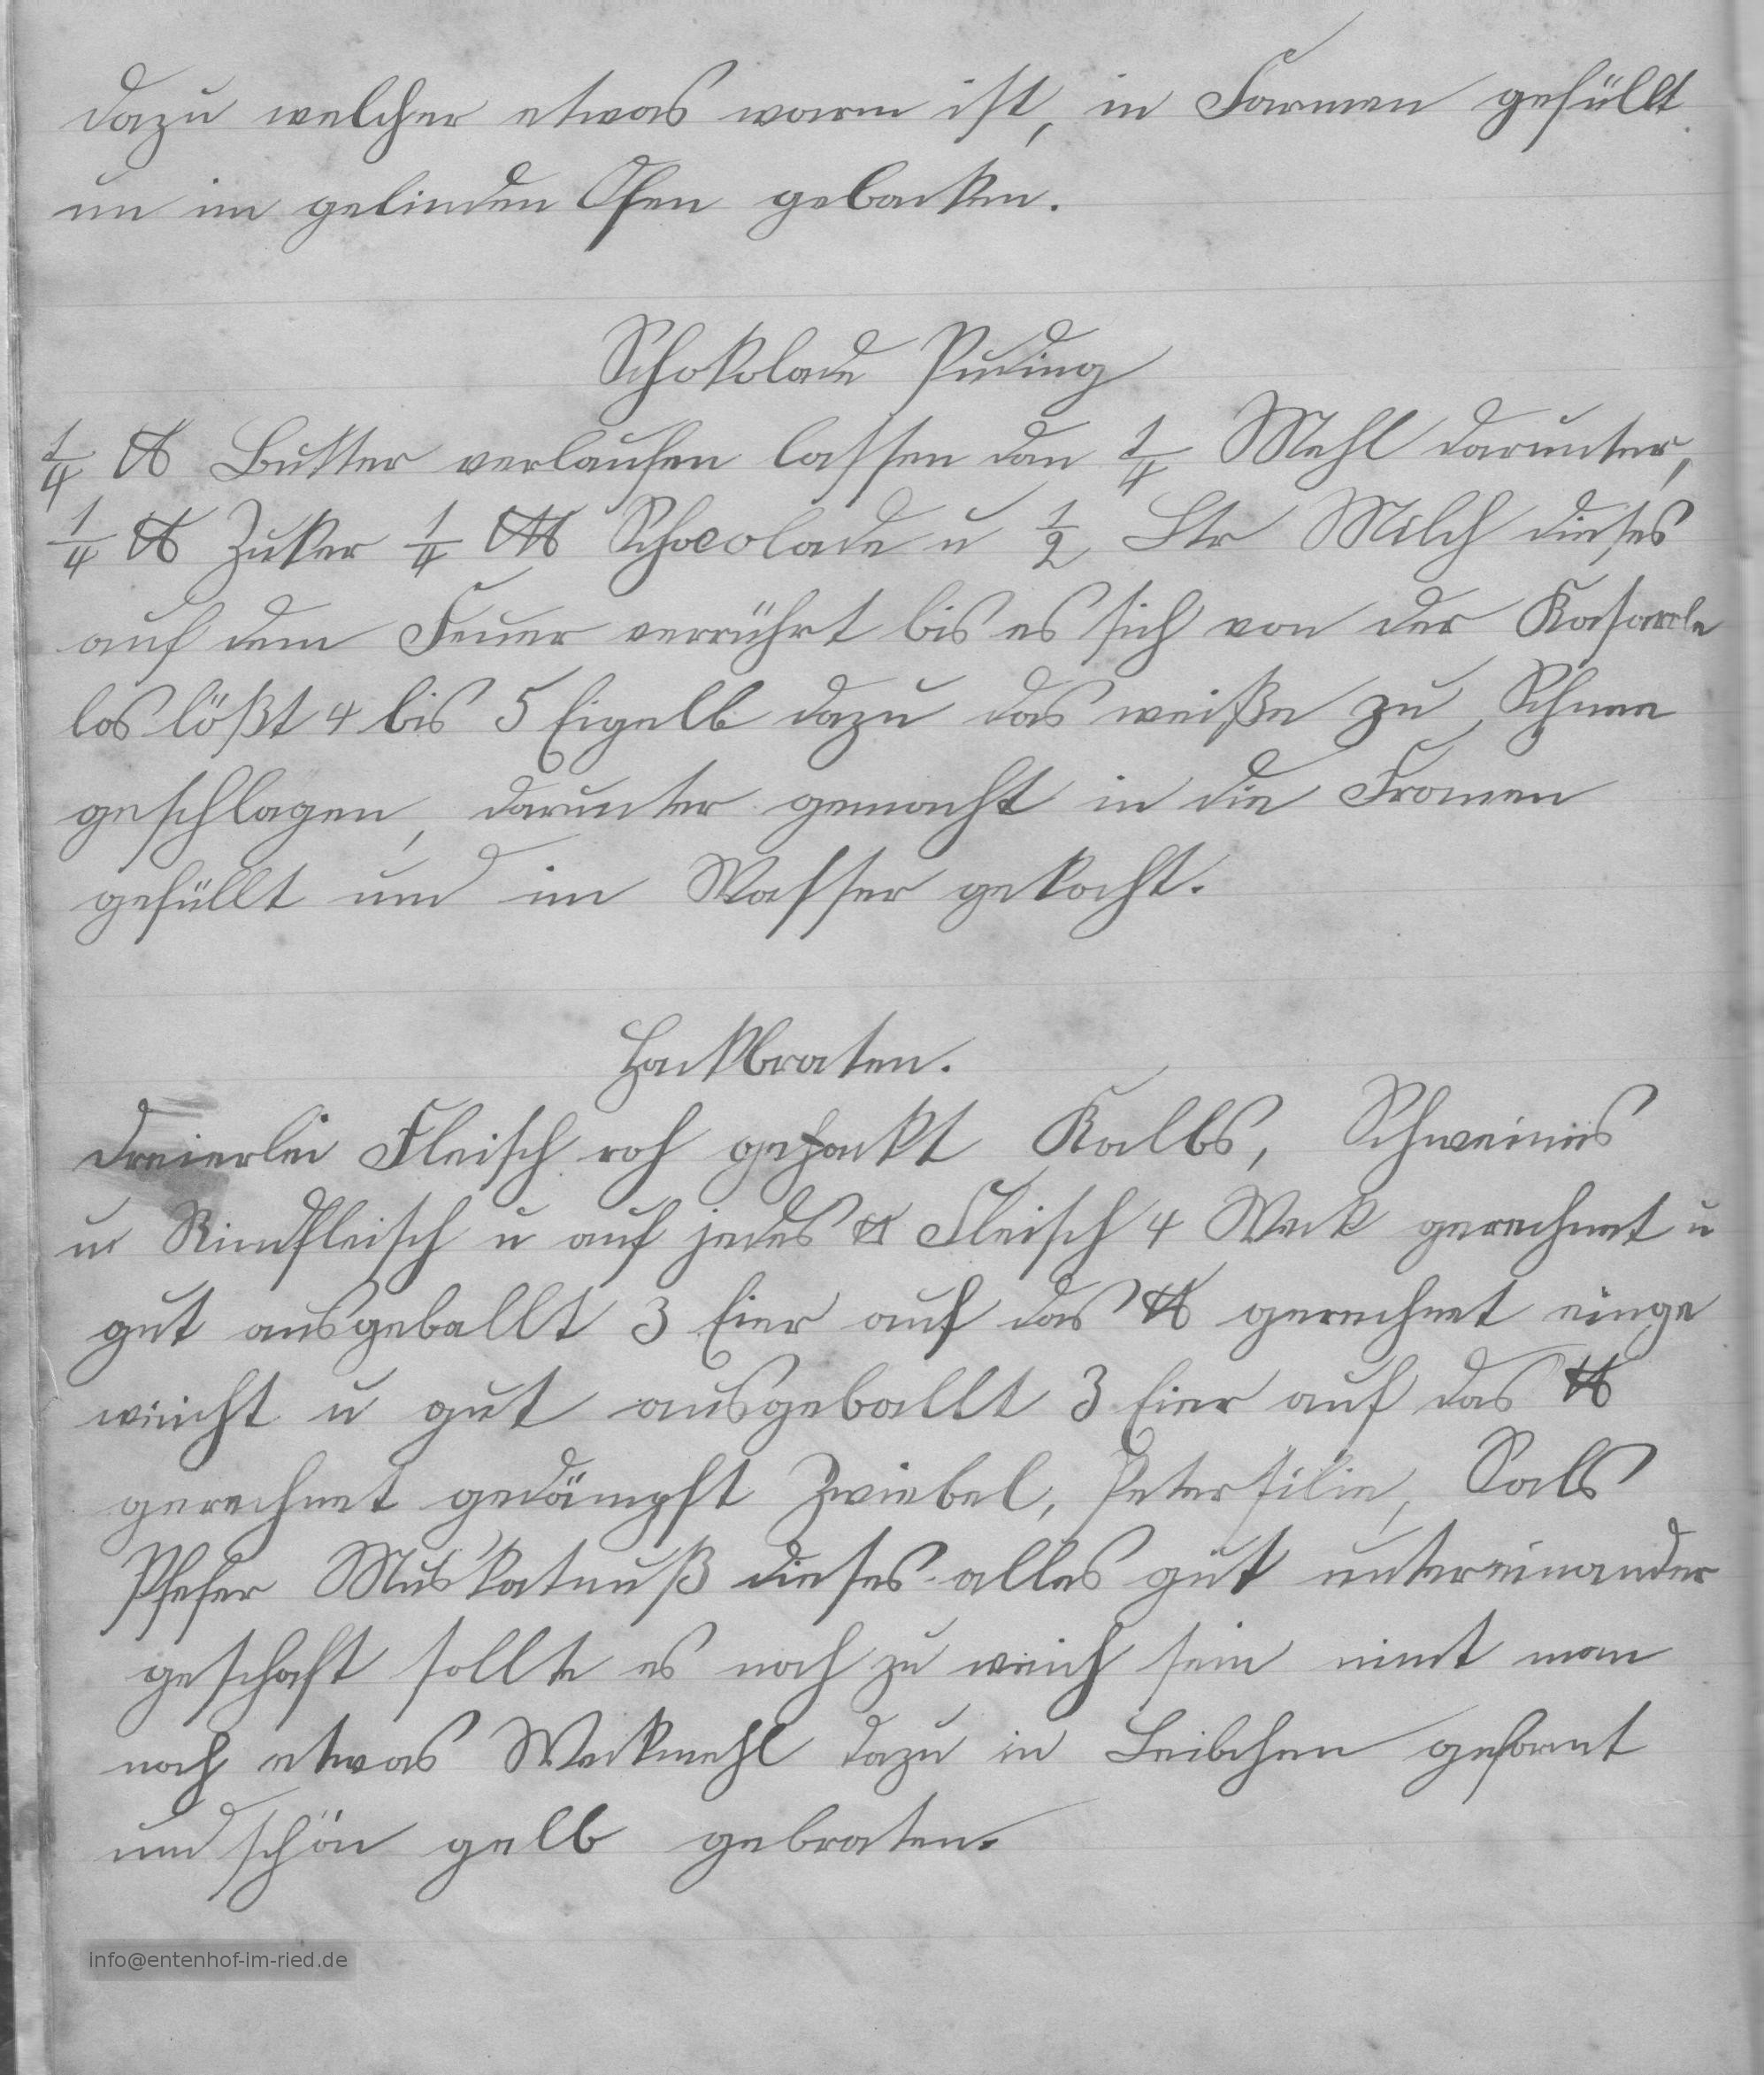 dazu welcher etwas warm ist, in Formen gefüllt
un im gelinden Ofen gebacken.
Schokolade Puding
1/4 ℔ Butter verlaufen lassen dan 1/4 Mehl darunter,
1/4 ℔ Zuker 1/4 ℔ Schocolade u 1/2 Ltr Milch dieses
auf dem Feuer verrührt bis es sich von der Kasarole
los lößt 4 bis 5 Eigelb dazu das weiße zu Schnee
geschlagen, darunter gemacht in die Fromen
gefüllt und im Wasser gekocht.
Hackbraten.
Dreierlei Fleisch roh gehackt Kalbs, Schweines
u Rindfleisch u auf jedes ℔ Fleisch 4 Weck gerechnet u
gut ausgeballt 3 Eier auf das ℔ gerechnet einge
weicht u gut ausgeballt 3 Eier auf das ℔
gerechnet gedämpft Zwiebel, Petersilie, Sals
Pfefer Muskatnuß dieses alles gut untereinander
geschaft sollte es noch zu weich sein nimt man
noch etwas Weckmehl dazu in Leibchen geformt
und schön gelb gebraten.
info@entenhof-im-ried.de